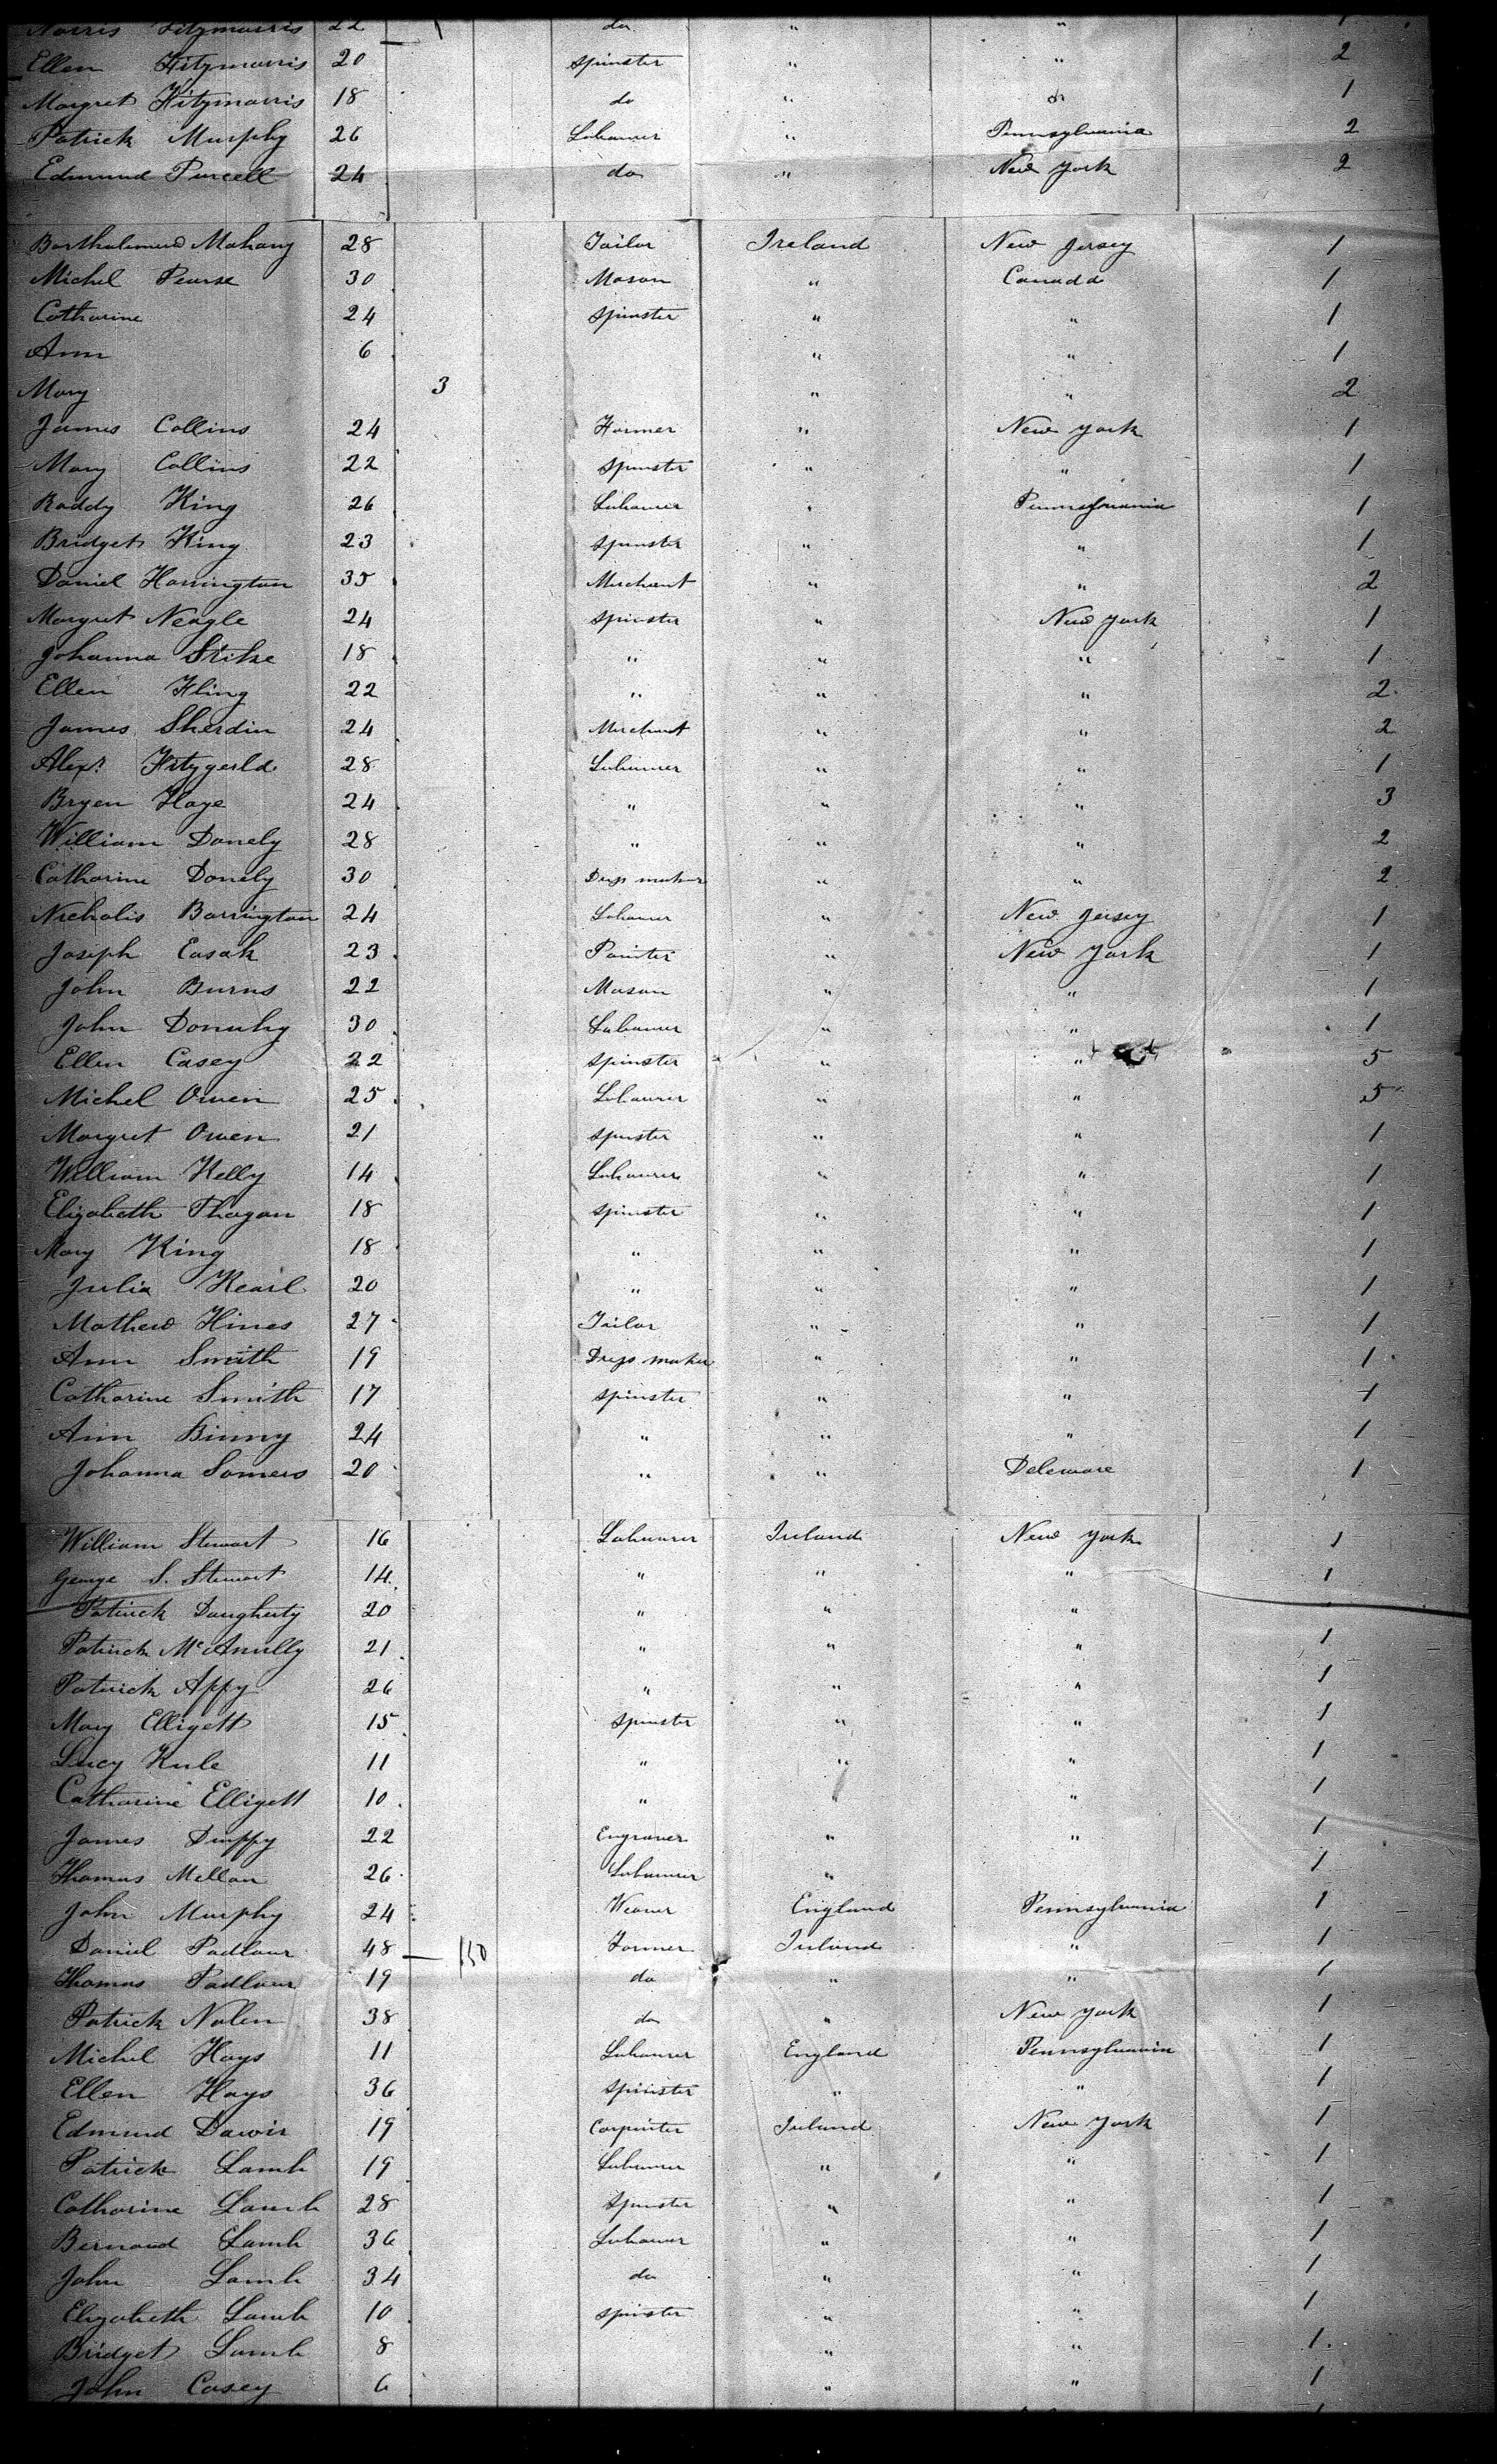 Norris Fitzmorris 22 do " " 1
Ellen Fitzmorris 20 Spinster " " 2
Margret Fitzmorris 18 do " do 1
Patrick Murphy 26 Labourer " Pennsylvania 2
Edmund Purcell 24 do " New York 2
Bartholemew Mahany 28 Tailor Ireland New Jersey 1
Michel Pearse 30 Mason " Canada 1
Catharine 24 Spinster " " 1
Ann 6 " " 1
Mary 3 " " 2
James Collins 24 Farmer " New York 1
Mary Collins 22 Spinster " " 1
Roddy King 26 Labourer " Pennsylvania 1
Bridget King 23 Spinster " " 1
Daniel Harrington 35 Merchant " " 2
Margret Neagle 24 Spinster " New York 1
Johanna 18 " " " 1
Ellen Kling 22 " " " 2
James Sherdin 24 Merchant " " 2
Alexr. Fitzgerld 28 Labourer " " 1
Bryen Haye 24 " " " 3
William Donely 28 " " " 2
Catharine Donely 30 Dress maker " " 2
Nicholis Barrington 24 Labourer " New Jersey 1
Joseph Casak 23 Painter " New York 1
John Burns 22 Mason " " 1
John Donuhy 30 Labourer " " 1
Ellen Casey 22 Spinster " " 5
Michel Owen 25 Labourer " " 5
Margret Owen 21 Spinster " " 1
William Kelly 14 Labourer " " 1
Elizabeth Thagan 18 Spinster " " 1
Mary King 18 " " " 1
Julia Kearl 20 " " " 1
Mathew Hines 27 Tailor " " 1
Ann Smith 19 Dress maker " " 1
Catharine Smith 17 Spinster " " 1
Ann Binny 24 " " " 1
Johanna Somers 20 " " Deleware 1
William Stewart 16 Labourer Ireland New York 1
George S. Stewart 14 " " " 1
Patrick Daugherty 20 " " "
Patrick McAnully 21 " " " 1
Patrick Appy 26 " " " 1
Mary Elligett 15 Spinster " " 1
Lucy Kule 11 " " " 1
Catharine Elligett 10 " " 1
James Duppy 22 Engraver " " 1
Thomas Mellan 26 Labourer " 1
John Murphy 24 Weaver England Pennsylvania 1
Daniel Padlour 48 150 Farmer Ireland " 1
Thomas Padlour 19 do " " 1
Patrick Nolen 38 do " New York 1
Michel Hays 11 Labourer England Pennsylvania 1
Ellen Hays 36 Spinster " " 1
Edmund Dawir 19 Carpenter Ireland New York 1
Patrick Lamb 19 Labourer " " 1
Catharine Lamb 28 Spinster " " 1
Bernard Lamb 36 Labourer " " 1
John Lamb 34 do " " 1
Elizabeth Lamb 10 Spinster " " 1
Bridget Lamb 8 " " 1
John Casey 6 " " 1